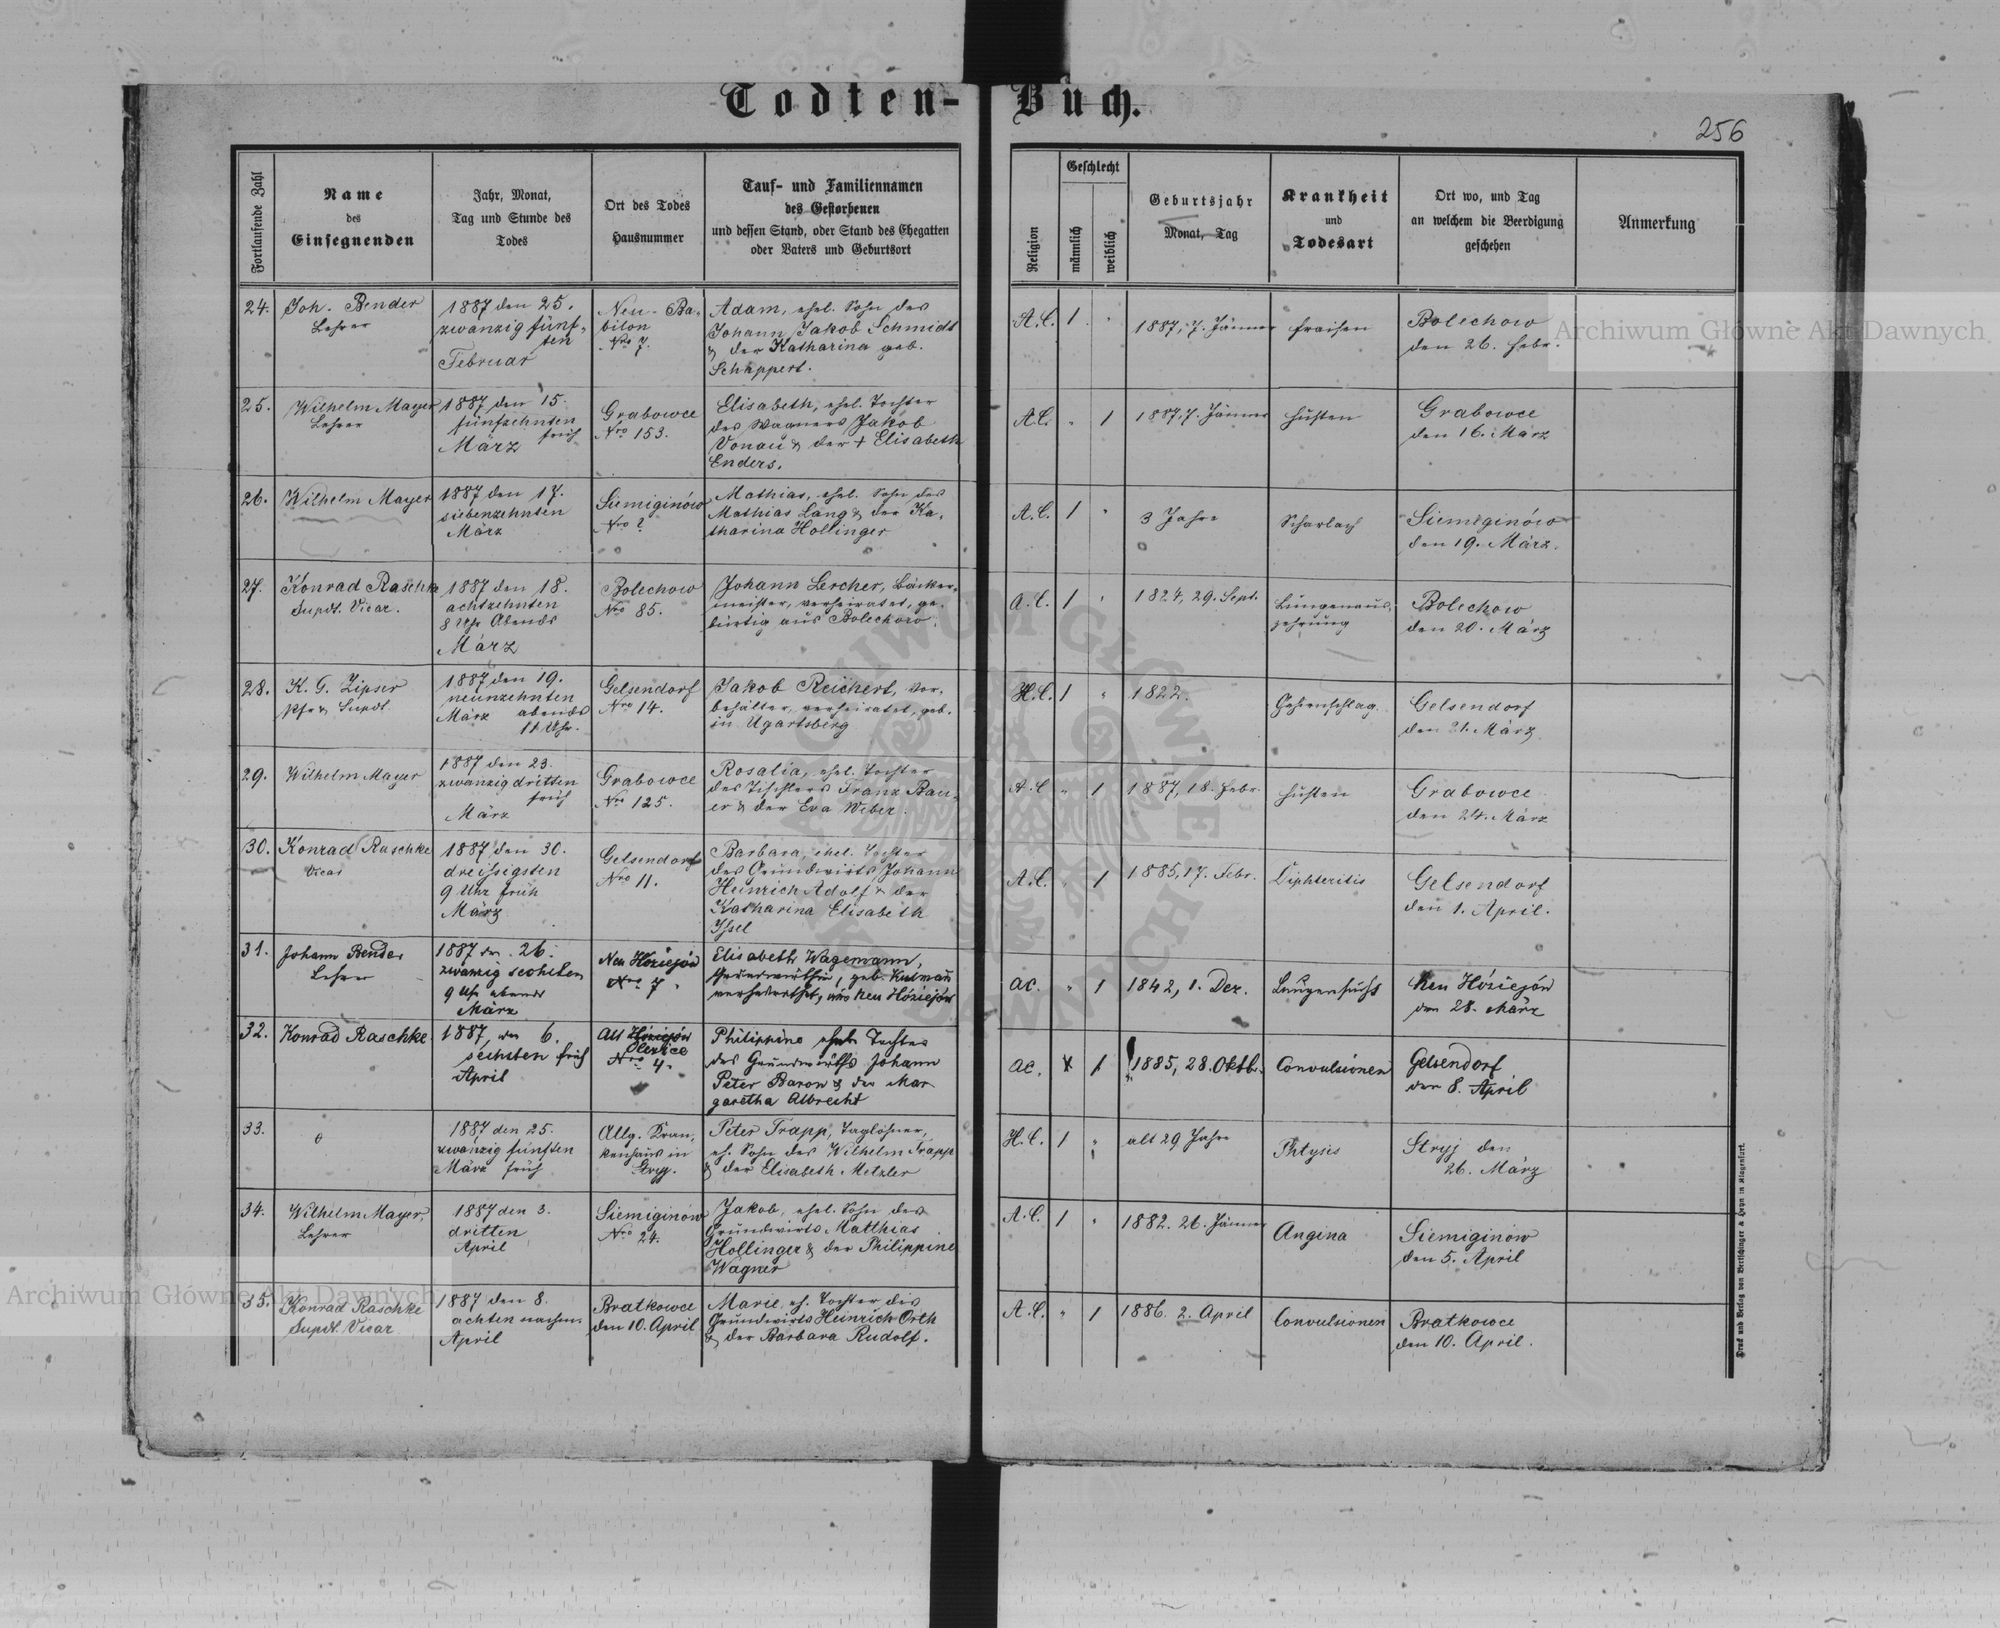 Todten-Buch.
256
Fortlaufende Zahl
Name
des
Einsegnenden
Jahr, Monat,
Tag und Stunde des
Todes
Ort des Todes
Hausnummer
Tauf- und Familiennamen
des Gestorbenen
und dessen Stand, oder Stand des Ehegatten
oder Vaters und Geburtsort
Religion
Geschlecht
männlich
weiblich
Geburtsjahr
Monat, Tag
Krankheit
und
Todesart
Ort wo, und Tag
an welchem die Beerdigung
geschehen
Anmerkung
24.
Joh. Bender
Lehrer
1887 den 25.
zwanzig fünf-
ten
Februar
Neu-Ba-
bilon
Nro 7.
Adam, ehel. Sohn des
Johann Jakob Schmidt
& der Katharina geb.
Schappert.
A.C.
1
"
1887, 7. Jänner
Fraisen
Bolechow
den 26. Febr.
25.
Wilhelm Mayer
Lehrer
1887 den 15.
fünfzehnten
früh
März
Grabowce
Nro 153.
Elisabeth, ehel. Tochter
des Wagners Jakob
Vonau & der + Elisabeth
Enders.
A.C.
"
1
1887, 7. Jänner
Husten
Grabowce
den 16. März
26.
Wilhelm Mayer
1887 den 17.
siebenzehnten
März
Siemiginów
Nro ?
Mathias, ehel. Sohn des
Mathias Lang & der Ka-
tharina Hollinger
A.C.
1
"
3 Jahre
Scharlach
Siemiginów
den 19. März.
27.
Konrad Raschke
Supdt. Vicar.
1887 den 18.
achtzehnten
8 Uhr Abends
März
Bolechow
Nro 85.
Johann Lercher, Bäcker-
meister, verheiratet, ge-
bürtig aus Bolechow.
A.C.
1
"
1824, 29. Sept.
Lungenaus-
zehrung
Bolechow
den 20. März
28.
K. G. Zipser
Pfr & Supdt.
1887 den 19.
neunzehnten
März abends
11 Uhr.
Gelsendorf
Nro 14.
Jakob Reichert, Vor-
behälter, verheiratet, geb.
in Ugartsberg
H.C.
1
"
1822.
Gehirnschlag
Gelsendorf
den 21. März
29.
Wilhelm Mayer
1887 den 23.
zwanzig dritten
früh
März
Grabowce
Nro 125.
Rosalia, ehel. Tochter
des Tischlers Franz Bau-
er & der Eva Weber.
A.C
"
1
1887, 18. Febr.
Husten
Grabowce
den 24. März
30.
Konrad Raschke
Vicar
1887 den 30.
dreissigsten
9 Uhr früh
März
Gelsendorf
Nro 11.
Barbara, ehel. Tochter
des Grundwirts Johann
Heinrich Adolf & der
Katharina Elisabeth
Issel
A.C.
"
1
1885, 17. Febr.
Diphteritis
Gelsendorf
den 1. April.
31.
Johann Bender
Lehrer
1887 den 26.
zwanzig sechsten
9 Uhr abends
März
Neu Hóziejów
Nro 7.
Elisabeth Wagemann,
geb.
verheirathet, Neu Hóziejów
AC.
"
1
1842, 1. Dez.
Lungensucht
Neu Hóziejów
den 28. März
32.
Konrad Raschke
1887, den 6.
sechsten früh
April
Alt Hóziejów
Nro 4.
Philippine ehel. Tochter
des Grundwirths Johann
Peter Baron & der Mar-
garetha Albrecht
AC.
1
1885, 28. Oktb.
Convulsionen
Gelsendorf
den 8. April
33.
1887 den 25.
zwanzig fünften
März früh
Allg. Kran-
kenhaus in
Stryj.
Peter Trapp, Taglöhner,
eh. Sohn des Wilhelm Trapp
& der Elisabeth Metzler
H.C.
1
"
alt 29 Jahre
Phtysis
Stryj den
26. März
34.
Wilhelm Mayer,
Lehrer
1887 den 3.
dritten
April
Siemiginów
Nro 24.
Jakob, ehel. Sohn des
Grundwirts Matthias
Hollinger & der Philippine
Wagner
A.C.
1
"
1882. 26. Jänner
Angina
Siemiginów
den 5. April
35.
Konrad Raschke
Supdt. Vicar
1887 den 8.
achten nachm.
April
Bratkowce
den 10. April
Marie, eh. Tochter des
Grundwirts Heinrich Orth
& der Barbara Rudolf.
A.C.
"
1
1886. 2. April
Convulsionen
Bratkowce
den 10. April.
Druck und Verlag von Bertschinger & Heyn in Klagenfurt.
Archiwum Główne Akt Dawnych
Archiwum Główne Akt Dawnych
ARCHIWUM GŁÓWNE AKT DAWNYCH